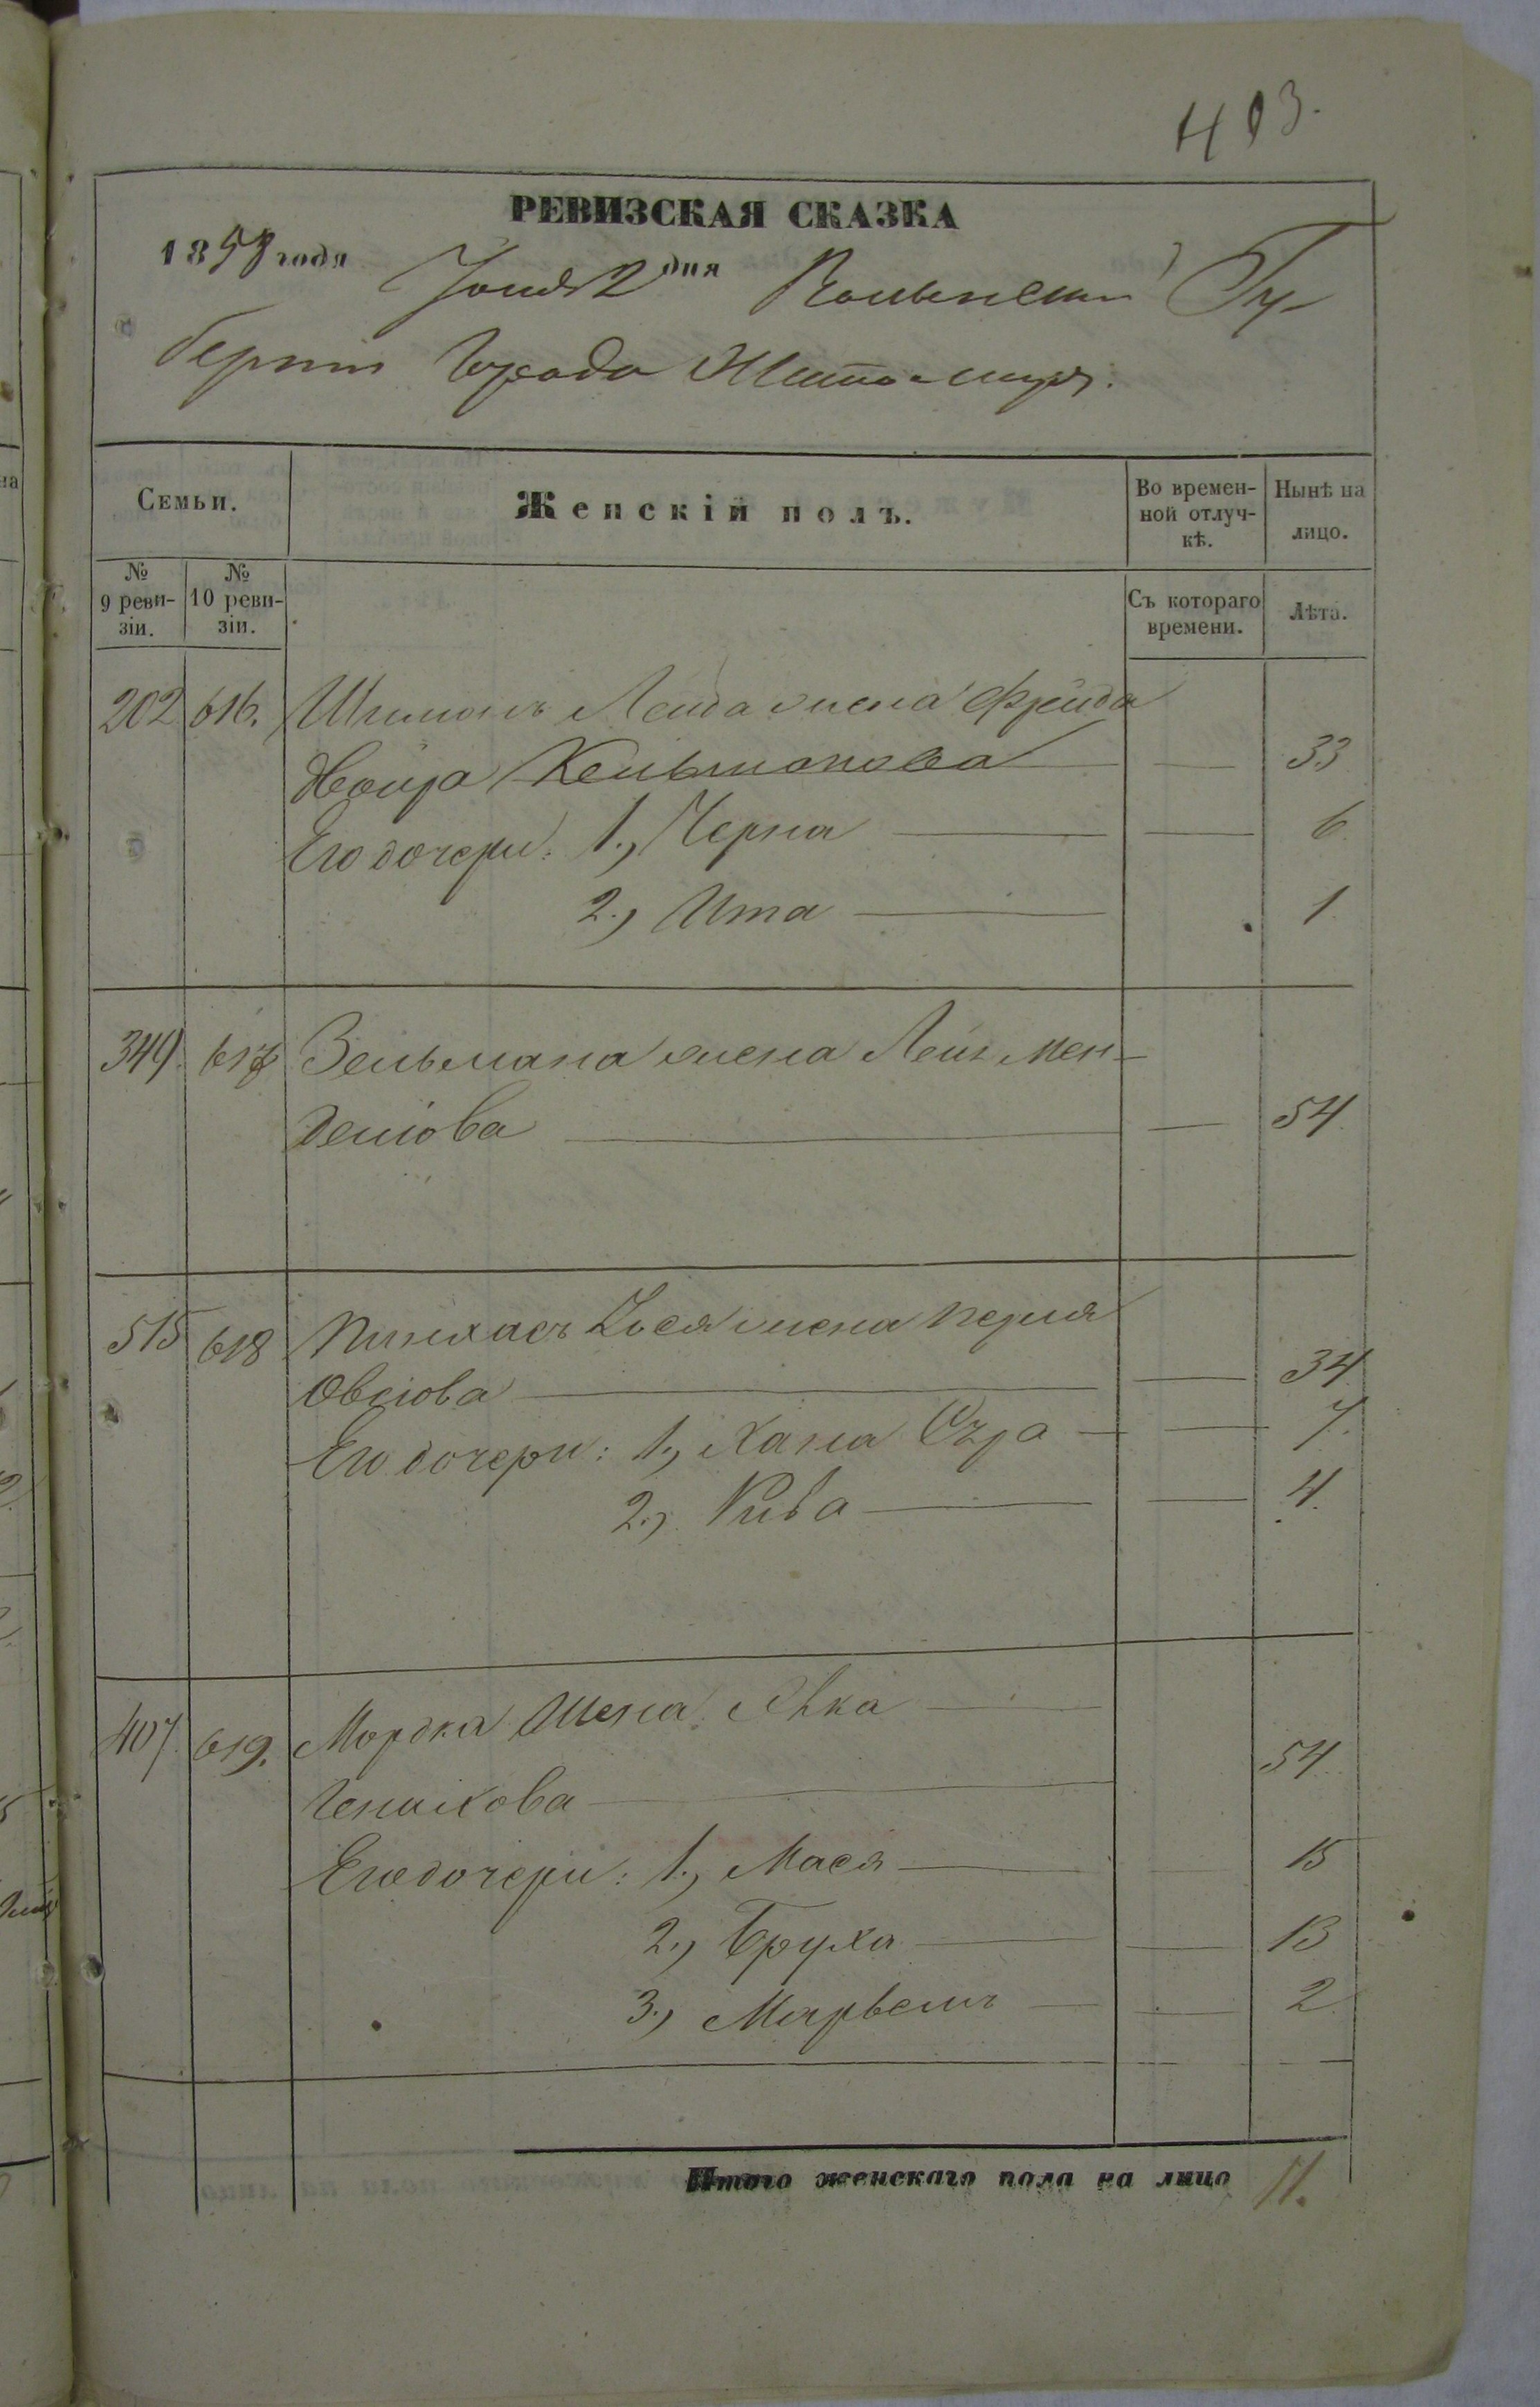 403.
РЕВИЗСКАЯ СКАЗКА
1858 года Іюня 2 дня Волынской Гу-
берніи Города Житомира.
Семьи. Женскій полъ. Во времен-ной отлуч-кѣ. Нынѣ на лицо.
№ 9 реви-зіи. № 10 реви-зіи. Съ котораго времени. Лѣта.
202 616. Шимонъ Лейба жена Фрейда
Двойра Кельмонова — — 33
Его дочери: 1., Черна — — 6
2., Ита — 1.
349. 617 Зельмана жена Лея Мен-
делiова — — 54.
515 618 Пинхасъ Іося жена Перля
Овсiова — — 34
Его дочери: 1., Хана Сура — — 7.
2., Рива — — 4.
407. 619. Мордка жена Хѣка —
— 54.
Его дочери: 1., Мася — — 15
2., Бруха — — 13
3., — — 2
Итого женскаго пола на лицо 11.